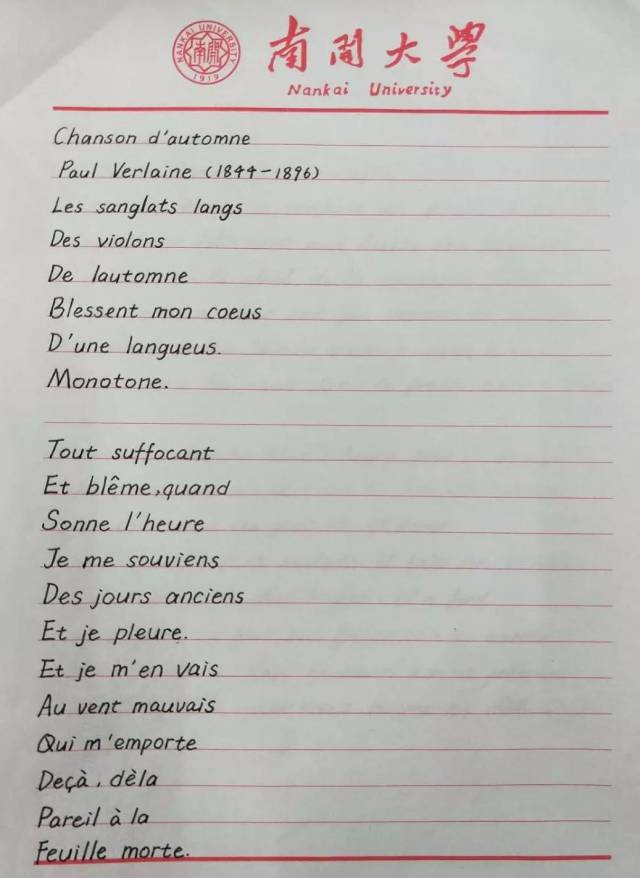 NANKAI UNIVERSITY
南開
1919
南開大學
Nankai University
Chanson d'automne
Paul Verlaine (1844-1896)
Les sanglats langs
Des violons
De lautomne
Blessent mon coeus
D'une langueus.
Monotone.
Tout suffocant
Et blême, quand
Sonne l'heure
Je me souviens
Des jours anciens
Et je pleure.
Et je m'en vais
Au vent mauvais
Qui m'emporte
Deçà, dèla
Pareil à la
Feuille morte.